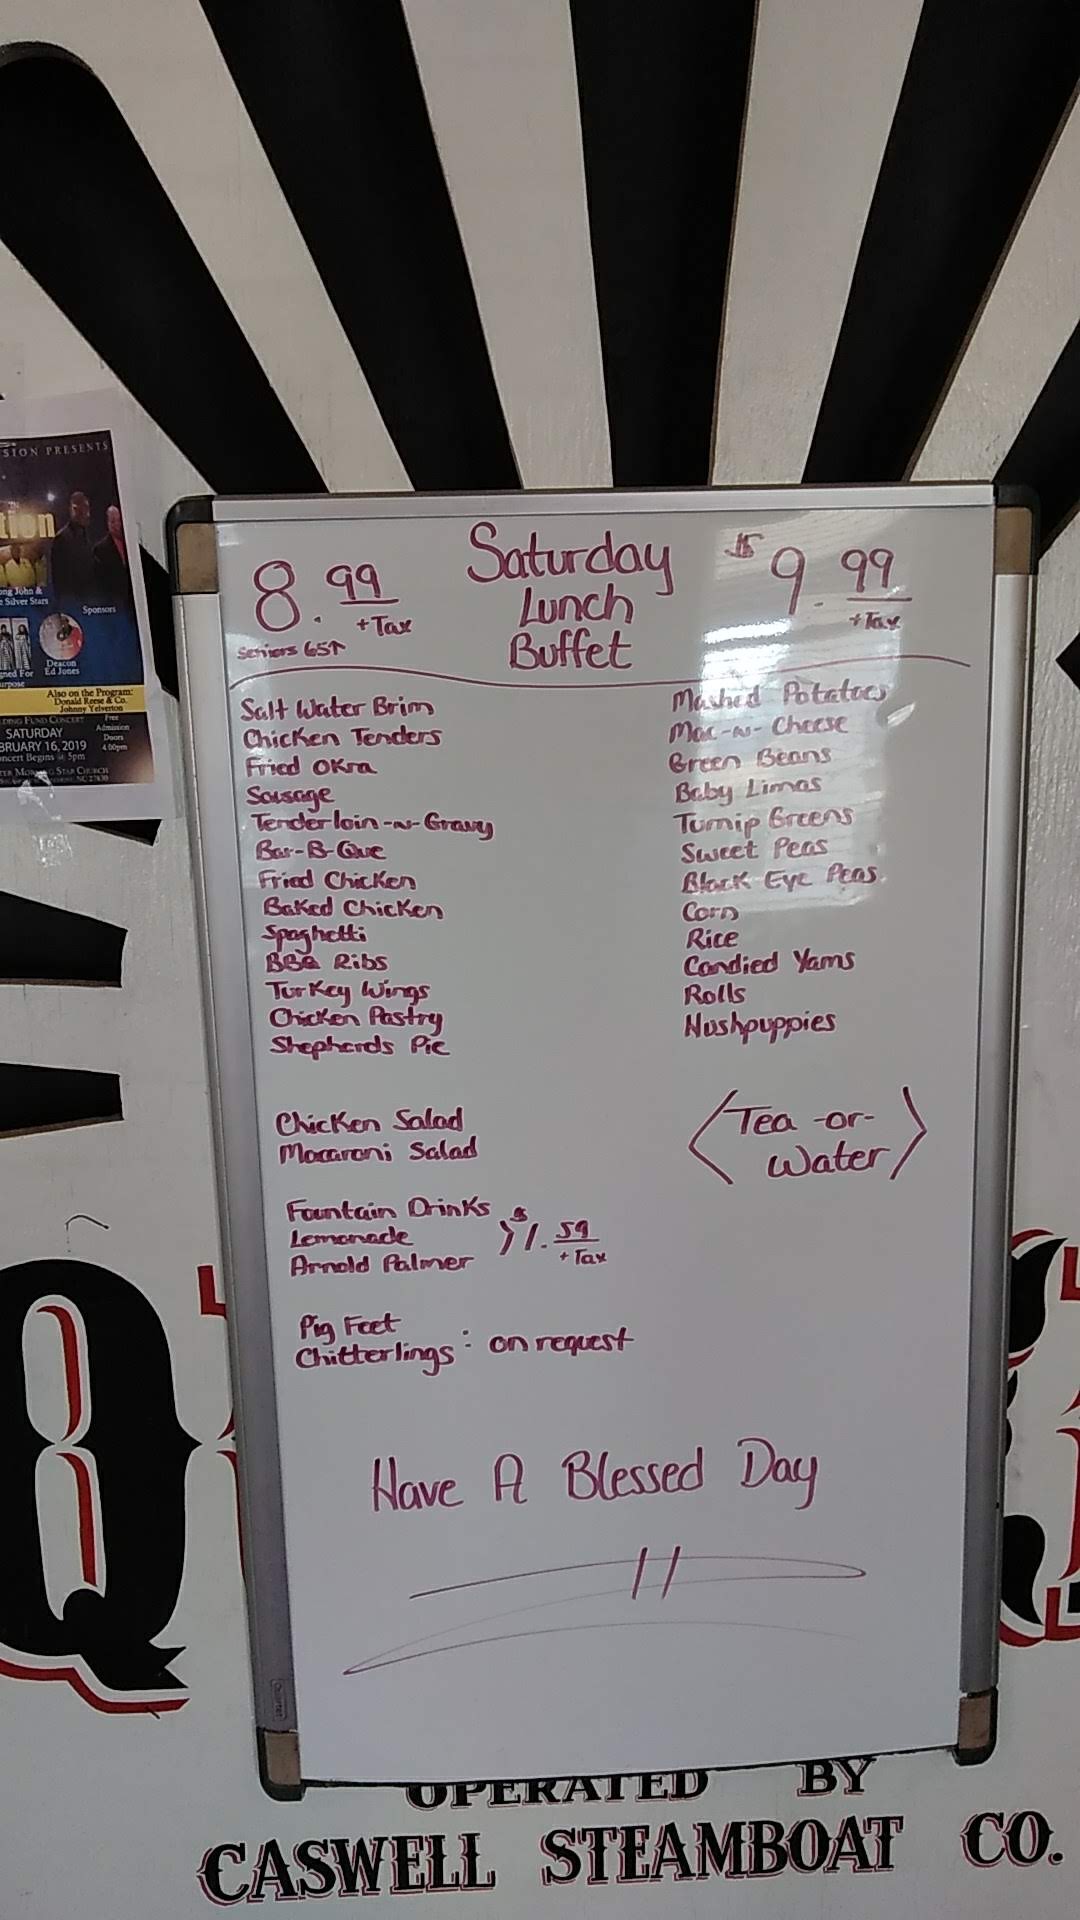 SION PRESENTS
tion
ong John &
e Silver Stars
Sponsors
Deacon
Ed Jones
gned For
urpose
Also on the Program:
Donald Reese & Co.
Johnny Yelverton
DING FUND CONCERT
SATURDAY
BRUARY 16, 2019
ncert Begins @ 5pm
Free
Admission
Doors
4:00pm
TER MORNING STAR CHURCH
8.99
+Tax
Seniors 65↑
Saturday
Lunch
Buffet
$9.99
+Tax
Salt Water Brim
Chicken Tenders
Fried Okra
Sausage
Tenderloin-n-Gravy
Bar-B-Que
Fried Chicken
Baked Chicken
Spaghetti
BBQ Ribs
Turkey Wings
Chicken Pastry
Shepherds Pie
Mashed Potatoes
Mac-n-Cheese
Green Beans
Baby Limas
Turnip Greens
Sweet Peas
Black Eye Peas
Corn
Rice
Candied Yams
Rolls
Hushpuppies
Chicken Salad
Macaroni Salad
Tea -or-
Water
Fountain Drinks
Lemonade
Arnold Palmer
$1.59
+Tax
Pig Feet
Chitterlings : on request
Have A Blessed Day
Q
OPERATED BY
CASWELL STEAMBOAT CO.